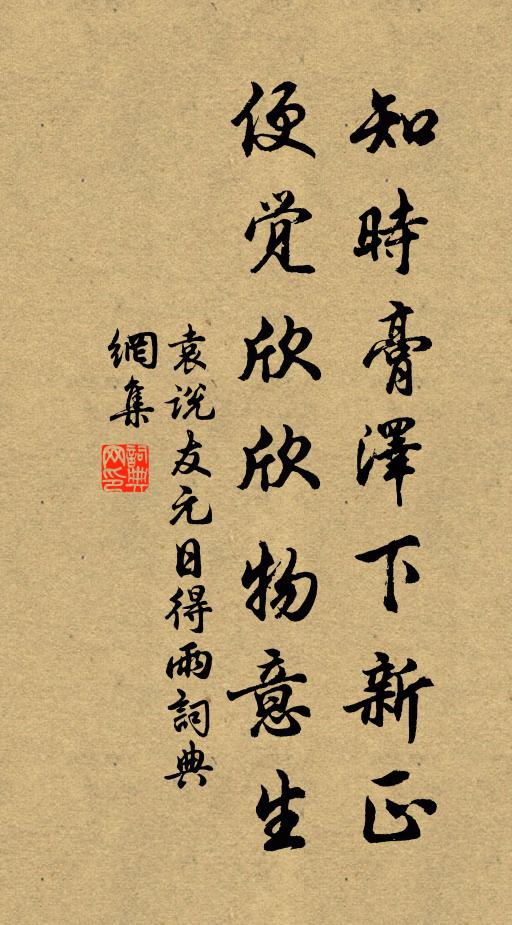 知時膏澤下新正
便覺欣欣物意生
袁説友元日得雨詞典
網集
詞典
网印